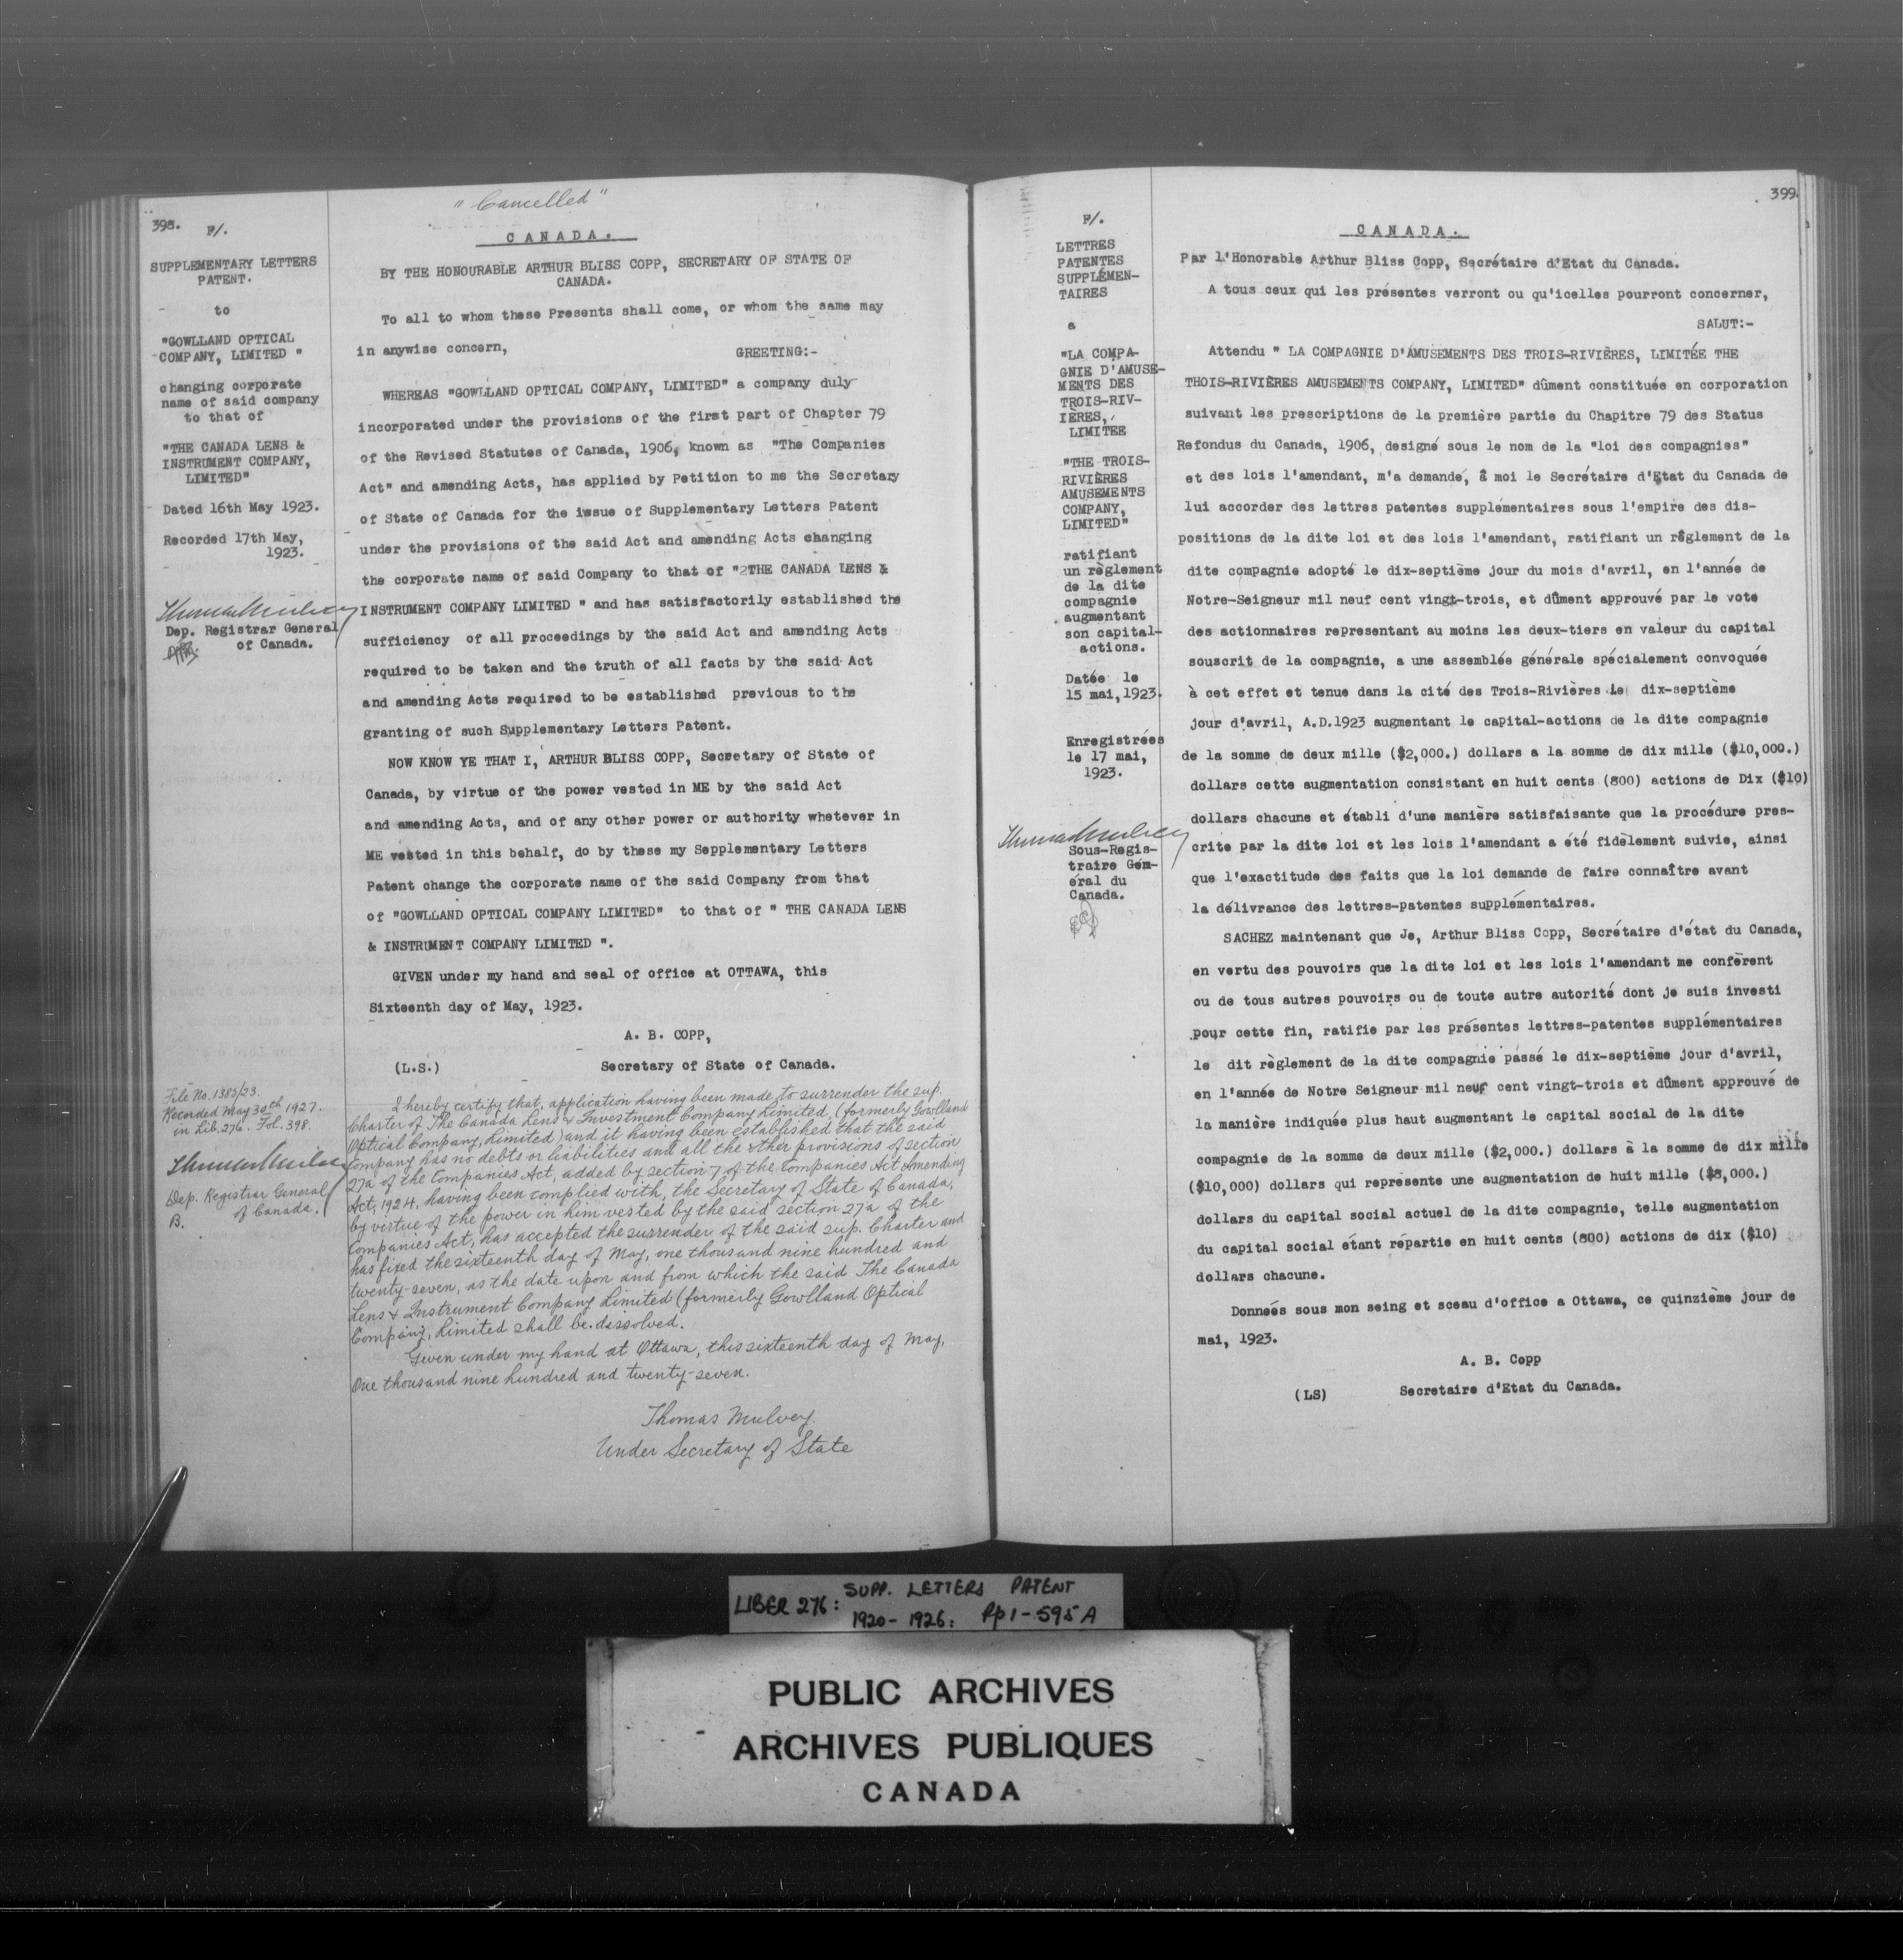 "Cancelled"
398.
F/.
SUPPLEMENTARY LETTERS
PATENT.
to
"GOWLLAND OPTICAL
COMPANY, LIMITED "
changing corporate
name of said company
to that of
"THE CANADA LENS &
INSTRUMENT COMPANY,
LIMITED"
Dated 16th May 1923.
Recorded 17th May,
1923.
Thomas Mulvey
Dep. Registrar General
of Canada.
CANADA.
BY THE HONOURABLE ARTHUR BLISS COPP, SECRETARY OF STATE OF
CANADA.
To all to whom these Presents shall come, or whom the same may
in anywise concern, GREETING:-
WHEREAS "GOWLLAND OPTICAL COMPANY, LIMITED" a company duly
incorporated under the provisions of the first part of Chapter 79
of the Revised Statutes of Canada, 1906, known as "The Companies
Act" and amending Acts, has applied by Petition to me the Secretary
of State of Canada for the issue of Supplementary Letters Patent
under the provisions of the said Act and amending Acts changing
the corporate name of said Company to that of "2THE CANADA LENS &
INSTRUMENT COMPANY LIMITED " and has satisfactorily established the
sufficiency of all proceedings by the said Act and amending Acts
required to be taken and the truth of all facts by the said Act
and amending Acts required to be established previous to the
granting of such Supplementary Letters Patent.
NOW KNOW YE THAT I, ARTHUR BLISS COPP, Secretary of State of
Canada, by virtue of the power vested in ME by the said Act
and amending Acts, and of any other power or authority whatever in
ME vested in this behalf, do by these my Sepplementary Letters
Patent change the corporate name of the said Company from that
of "GOWLLAND OPTICAL COMPANY LIMITED" to that of " THE CANADA LENS
& INSTRUMENT COMPANY LIMITED ".
GIVEN under my hand and seal of office at OTTAWA, this
Sixteenth day of May, 1923.
A. B. COPP,
(L.S.) Secretary of State of Canada.
File No. 1385/23.
Recorded May 30th 1927.
in Lib. 276. Fol. 398.
Thomas Mulvey
Dep. Registrar General
of Canada.
B.
I hereby certify that, application having been made to surrender the sup.
Charter of The Canada Lens & Investment Company Limited, (formerly Gowlland
Optical Company, Limited) and it having been established that the said
Company has no debts or liabilities and all the other provisions of section
27a of the Companies Act, added by section 7 of the Companies Act Amending
Act, 1924, having been complied with, the Secretary of State of Canada,
by virtue of the power in him vested by the said section 27a of the
Companies Act, has accepted the surrender of the said sup. Charter and
has fixed the sixteenth day of May, one thousand nine hundred and
twenty-seven, as the date upon and from which the said The Canada
Lens & Instrument Company Limited (formerly Gowlland Optical
Company, Limited shall be dissolved.
Given under my hand at Ottawa, this sixteenth day of May,
One thousand nine hundred and twenty-seven.
Thomas Mulvey.
Under Secretary of State
399.
F/.
LETTRES
PATENTES
SUPPLÉMEN-
TAIRES
a
"LA COMPA-
GNIE D'AMUSE-
MENTS DES
TROIS-RIV-
IÈRES,
LIMITEE
"THE TROIS-
RIVIÈRES
AMUSEMENTS
COMPANY,
LIMITED"
ratifiant
un règlement
de la dite
compagnie
augmentant
son capital-
actions.
Datée le
15 mai, 1923.
Enregistrées
le 17 mai,
1923.
Thomas Mulvey
Sous-Regis-
traire Gén-
éral du
Canada.
CANADA.
Par l'Honorable Arthur Bliss Copp, Secrétaire d'Etat du Canada.
A tous ceux qui les présentes verront ou qu'icelles pourront concerner,
SALUT:-
Attendu " LA COMPAGNIE D'AMUSEMENTS DES TROIS-RIVIÈRES, LIMITÉE THE
THOIS-RIVIÈRES AMUSEMENTS COMPANY, LIMITED" dûment constituée en corporation
suivant les prescriptions de la première partie du Chapitre 79 des Status
Refondus du Canada, 1906, designé sous le nom de la "loi des compagnies"
et des lois l'amendant, m'a demandé, â moi le Secrétaire d'Etat du Canada de
lui accorder des lettres patentes supplémentaires sous l'empire des dis-
positions de la dite loi et des lois l'amendant, ratifiant un règlement de la
dite compagnie adopté le dix-septième jour du mois d'avril, en l'année de
Notre-Seigneur mil neuf cent vingt-trois, et dûment approuvé par le vote
des actionnaires representant au moins les deux-tiers en valeur du capital
souscrit de la compagnie, a une assemblée générale spécialement convoquée
à cet effet et tenue dans la cité des Trois-Rivières le dix-septième
jour d'avril, A.D.1923 augmentant le capital-actions de la dite compagnie
de la somme de deux mille ($2,000.) dollars a la somme de dix mille ($10,000.)
dollars cette augmentation consistant en huit cents (800) actions de Dix ($10)
dollars chacune et établi d'une manière satisfaisante que la procédure pres-
crite par la dite loi et les lois l'amendant a été fidèlement suivie, ainsi
que l'exactitude des faits que la loi demande de faire connaître avant
la délivrance des lettres-patentes supplémentaires.
SACHEZ maintenant que Je, Arthur Bliss Copp, Secrétaire d'état du Canada,
en vertu des pouvoirs que la dite loi et les lois l'amendant me confèrent
ou de tous autres pouvoirs ou de toute autre autorité dont je suis investi
pour cette fin, ratifie par les présentes lettres-patentes supplémentaires
le dit règlement de la dite compagnie passé le dix-septième jour d'avril,
en l'année de Notre Seigneur mil neuf cent vingt-trois et dûment approuvé de
la manière indiquée plus haut augmentant le capital social de la dite
compagnie de la somme de deux mille ($2,000.) dollars à la somme de dix mille
($10,000) dollars qui represente une augmentation de huit mille ($8,000.)
dollars du capital social actuel de la dite compagnie, telle augmentation
du capital social étant répartie en huit cents (800) actions de dix ($10)
dollars chacune.
Données sous mon seing et sceau d'office a Ottawa, ce quinzième jour de
mai, 1923.
A. B. Copp
(LS) Secretaire d'Etat du Canada.
LIBER 276: SUPP. LETTERS PATENT
1920-1926: Pp 1-595A
PUBLIC ARCHIVES
ARCHIVES PUBLIQUES
CANADA